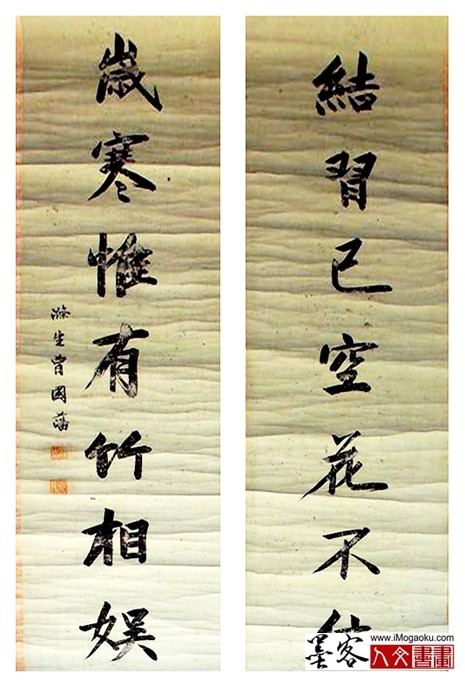 結習已空花不
歲寒惟有竹相娛
滌生曾國藩
墨客
www.iMogaoku.com
人文書畫